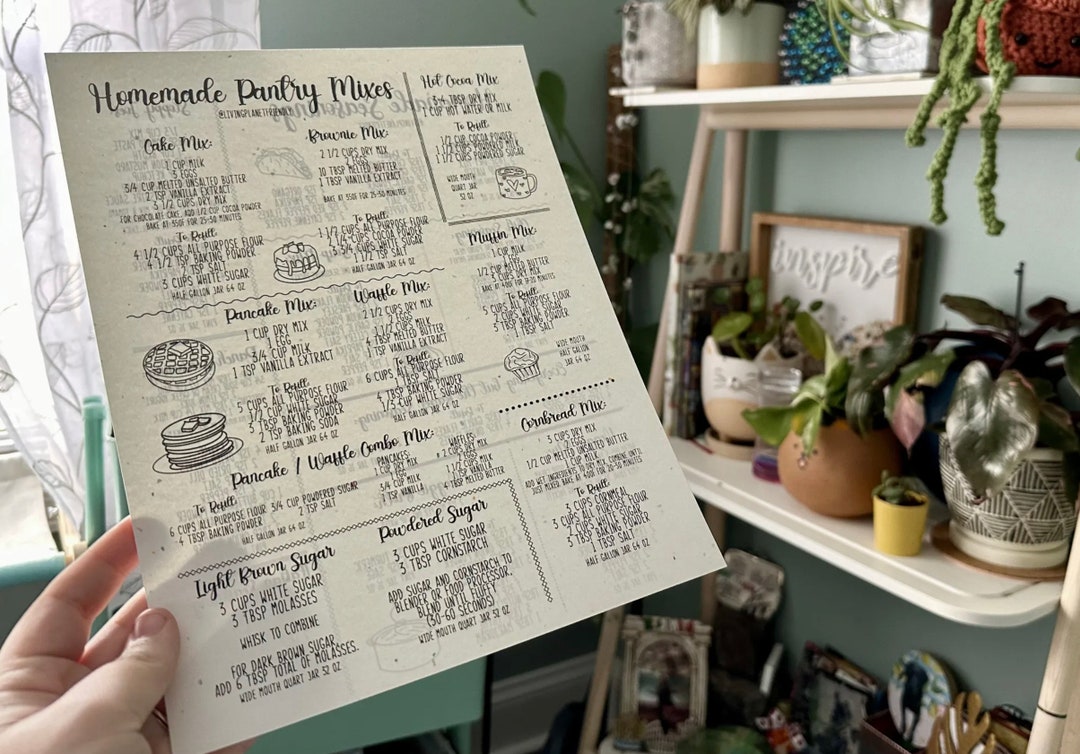 Homemade Pantry Mixes
@LIVINGPLANETFRIENDLY
Cake Mix:
1 CUP MILK
3 EGGS
3/4 CUP MELTED UNSALTED BUTTER
2 TSP VANILLA EXTRACT
3 1/2 CUPS DRY MIX
FOR CHOCOLATE CAKE, ADD 1/2 CUP COCOA POWDER
BAKE AT 350F FOR 25-50 MINUTES
To Refill
4 1/2 CUPS ALL PURPOSE FLOUR
4 1/2 TSP BAKING POWDER
1/2 TSP SALT
3 CUPS WHITE SUGAR
HALF GALLON JAR 64 OZ
Brownie Mix:
2 1/2 CUPS DRY MIX
2 EGGS
10 TBSP MELTED BUTTER
1 TBSP VANILLA EXTRACT
BAKE AT 350F FOR 25-30 MINUTES
To Refill
1 1/2 CUPS ALL PURPOSE FLOUR
CUPS WHITE SUGAR
1 1/2 TSP SALT
HALF GALLON JAR 64 OZ
Hot Cocoa Mix
3-4 TBSP DRY MIX
1 CUP HOT WATER OR MILK
To Refill
1/2 CUP COCOA POWDER
1 1/2 CUPS POWDERED MILK
1 1/2 CUPS POWDERED SUGAR
WIDE MOUTH
QUART JAR
32 OZ
Muffin Mix:
1 CUP MILK
1/2 CUP MELTED BUTTER
3 CUPS DRY MIX
To Refill
5 CUPS ALL PURPOSE FLOUR
CUPS WHITE SUGAR
5 TBSP BAKING POWDER
1 TBSP SALT
WIDE MOUTH
HALF GALLON
JAR 64 OZ
Pancake Mix:
1 CUP DRY MIX
1 EGG
3/4 CUP MILK
1 TSP VANILLA EXTRACT
To Refill
5 CUPS ALL PURPOSE FLOUR
CUP WHITE SUGAR
3 TBSP BAKING POWDER
2 TSP BAKING SODA
HALF GALLON JAR 64 OZ
Waffle Mix:
2 1/2 CUPS DRY MIX
2 EGGS
1 1/2 CUPS MILK
MELTED BUTTER
1 TSP VANILLA EXTRACT
To Refill
6 CUPS ALL PURPOSE FLOUR
4 TBSP BAKING POWDER
CUP WHITE SUGAR
HALF GALLON JAR 64 OZ
Pancake / Waffle Combo Mix:
To Refill
6 CUPS ALL PURPOSE FLOUR
4 TBSP BAKING POWDER
3/4 CUP POWDERED SUGAR
2 TSP SALT
HALF GALLON JAR 64 OZ
PANCAKES:
1 CUP DRY MIX
1 EGG
3/4 CUP MILK
1 TSP VANILLA
WAFFLES:
2 CUPS DRY MIX
2 EGGS
1 1/2 CUP MILK
1 TSP VANILLA
4 TBSP MELTED BUTTER
Cornbread Mix:
3 CUPS DRY MIX
2 EGGS
1/2 CUP MELTED UNSALTED BUTTER
CUP MILK
ADD WET INGREDIENTS TO DRY MIX, COMBINE UNTIL
JUST MIXED BAKE AT 400F FOR 20-30 MINUTES
To Refill
3 CUPS CORNMEAL
3 CUPS ALL PURPOSE FLOUR
CUPS WHITE SUGAR
3 TBSP BAKING POWDER
1 TBSP SALT
HALF GALLON JAR 64 OZ
Light Brown Sugar
3 CUPS WHITE SUGAR
3 TBSP MOLASSES
WHISK TO COMBINE
FOR DARK BROWN SUGAR
ADD 6 TBSP TOTAL OF MOLASSES.
WIDE MOUTH QUART JAR 32 OZ
Powdered Sugar
3 CUPS WHITE SUGAR
3 TBSP CORNSTARCH
ADD SUGAR AND CORNSTARCH TO
BLENDER OR FOOD PROCESSOR.
BLEND UNTIL FLUFFY
(30-60 SECONDS)
WIDE MOUTH QUART JAR 32 OZ
inspire